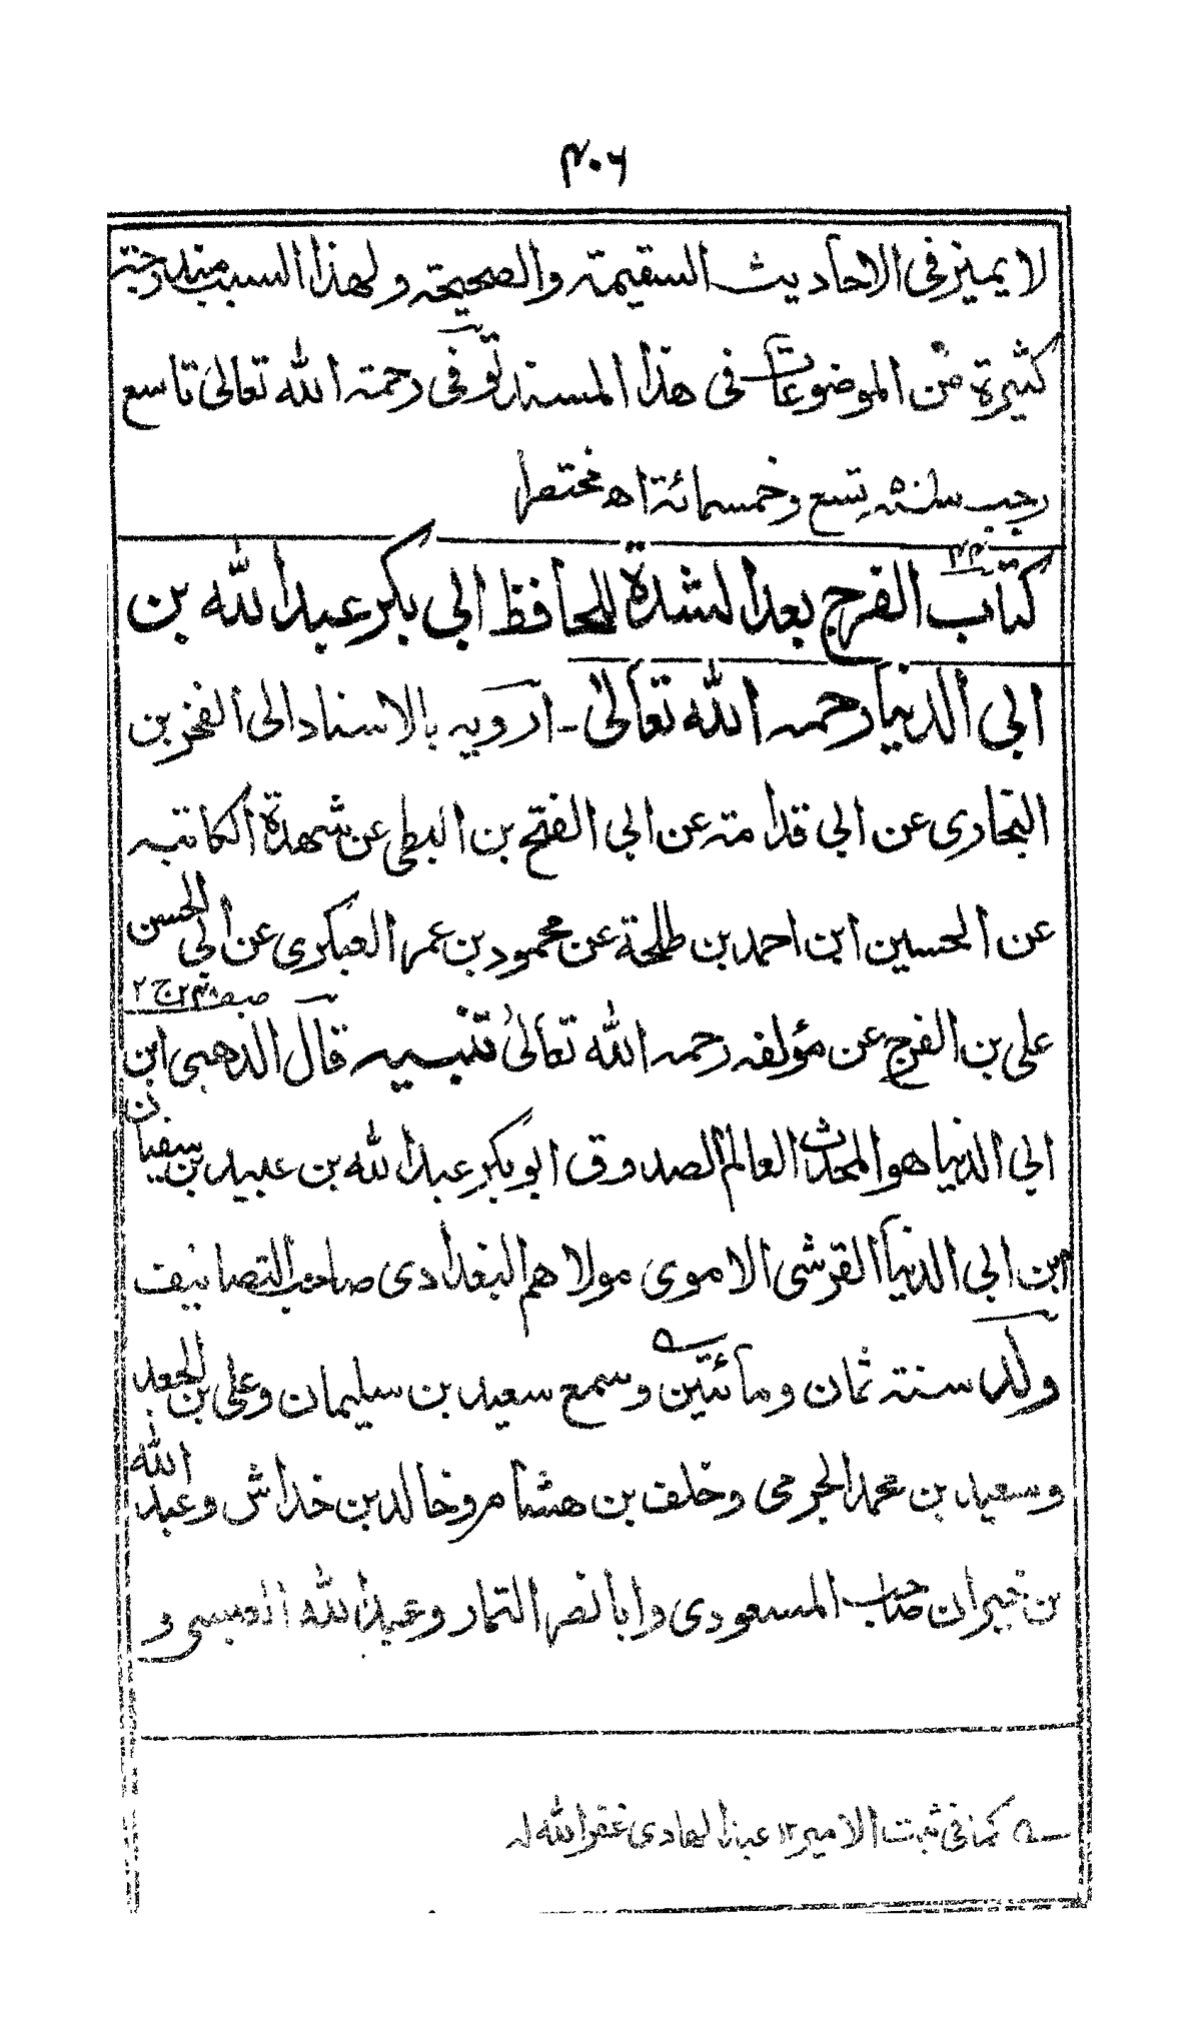 ٤٠٦
لا يميز في الاحاديث السقيمة والصحيحة ولهذا السبب مندرجة
كثيرة من الموضوعات في هذا المسند توفي رحمة الله تعالى تاسع
رجب سنة ٥٠٩ تسع وخمسمائة اه مختصرا
كتاب الفرج بعد الشدة للحافظ ابي بكر عبد الله بن
ابي الدنيا رحمه الله تعالى ـ ارويه بالاسناد الى الفخر بن
البخاري عن ابي قدامة عن ابي الفتح بن البطي عن شهدة الكاتبه
عن الحسين ابن احمد بن طلحة عن محمود بن عمر العبكري عن ابي الحسن
علي بن الفرج عن مؤلفه رحمه الله تعالى تنبيه قال الذهبي ابن
ابي الدنيا هو المحدث العالم الصدوق ابو بكر عبد الله بن عبيد بن سفيان
ابن ابي الدنيا القرشي الاموي مولاهم البغدادي صاحب التصانيف
ولد سنة ثمان ومائتين وسمع سعيد بن سليمان وعلي بن الجعد
وسعيد بن محمد الجرمي وخلف بن هشام وخالد بن خداش وعبد الله
بن خيران صاحب المسعودي وابا نصر التمار وعبد الله العيسى و
كما في ثبت الامير ١٢ عبد الهادي غفر الله له